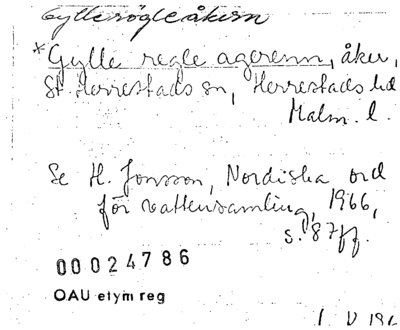 Gyllerögleåkern
*Gylle regle agerenn, åker,
St. Herrestads sn, Herrestads hd
Malm. l.
Se H. Jonsson, Nordiska ord
för vattensamling, 1966,
s. 87 ff.
00024786
OAU etym reg